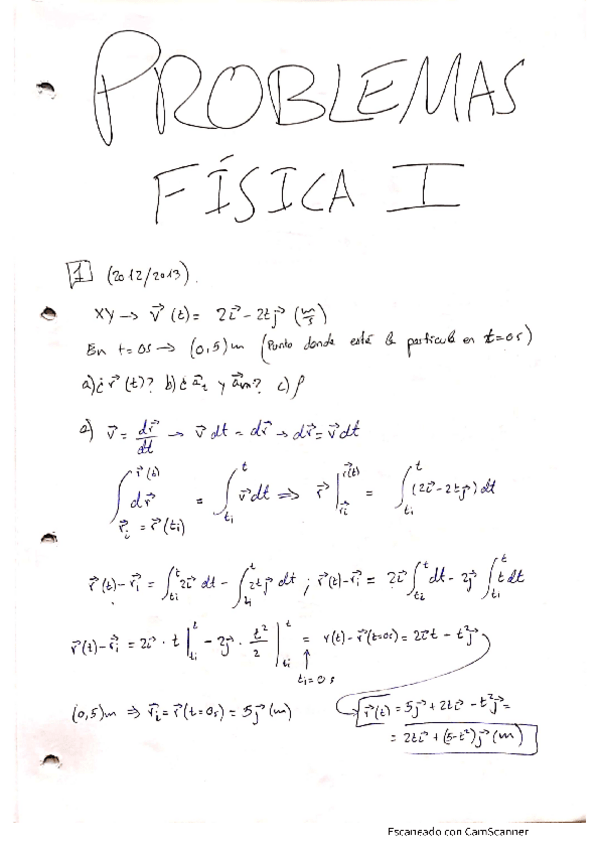 PROBLEMAS
FÍSICA I
1 (2012/2013).
XY → v⃗ (t) = 2i⃗ - 2tj⃗ (m/s)
En t = 0s → (0,5)m (Punto donde está la partícula en t=0s)
a) ¿r⃗ (t)? b) ¿a⃗t y a⃗n? c) ρ
a) v⃗ = dr⃗/dt → v⃗ dt = dr⃗ → dr⃗ = v⃗ dt
∫_{r⃗i = r⃗(ti)}^{r⃗(t)} dr⃗ = ∫_{ti}^{t} v⃗ dt ⇒ r⃗ |_{r⃗i}^{r⃗(t)} = ∫_{ti}^{t} (2i⃗ - 2tj⃗) dt
r⃗(t) - r⃗i = ∫_{ti}^{t} 2i⃗ dt - ∫_{ti}^{t} 2tj⃗ dt ; r⃗(t) - r⃗i = 2i⃗ ∫_{ti}^{t} dt - 2j⃗ ∫_{ti}^{t} t dt
r⃗(t) - r⃗i = 2i⃗ · t |_{ti}^{t} - 2j⃗ · t²/2 |_{ti}^{t} = r(t) - r⃗(t=0s) = 2i⃗t - t²j⃗
↑
ti = 0 s
(0,5)m ⇒ r⃗i = r⃗(t=0s) = 5j⃗ (m)
r⃗(t) = 5j⃗ + 2ti⃗ - t²j⃗ =
= 2ti⃗ + (5-t²)j⃗ (m)
Escaneado con CamScanner